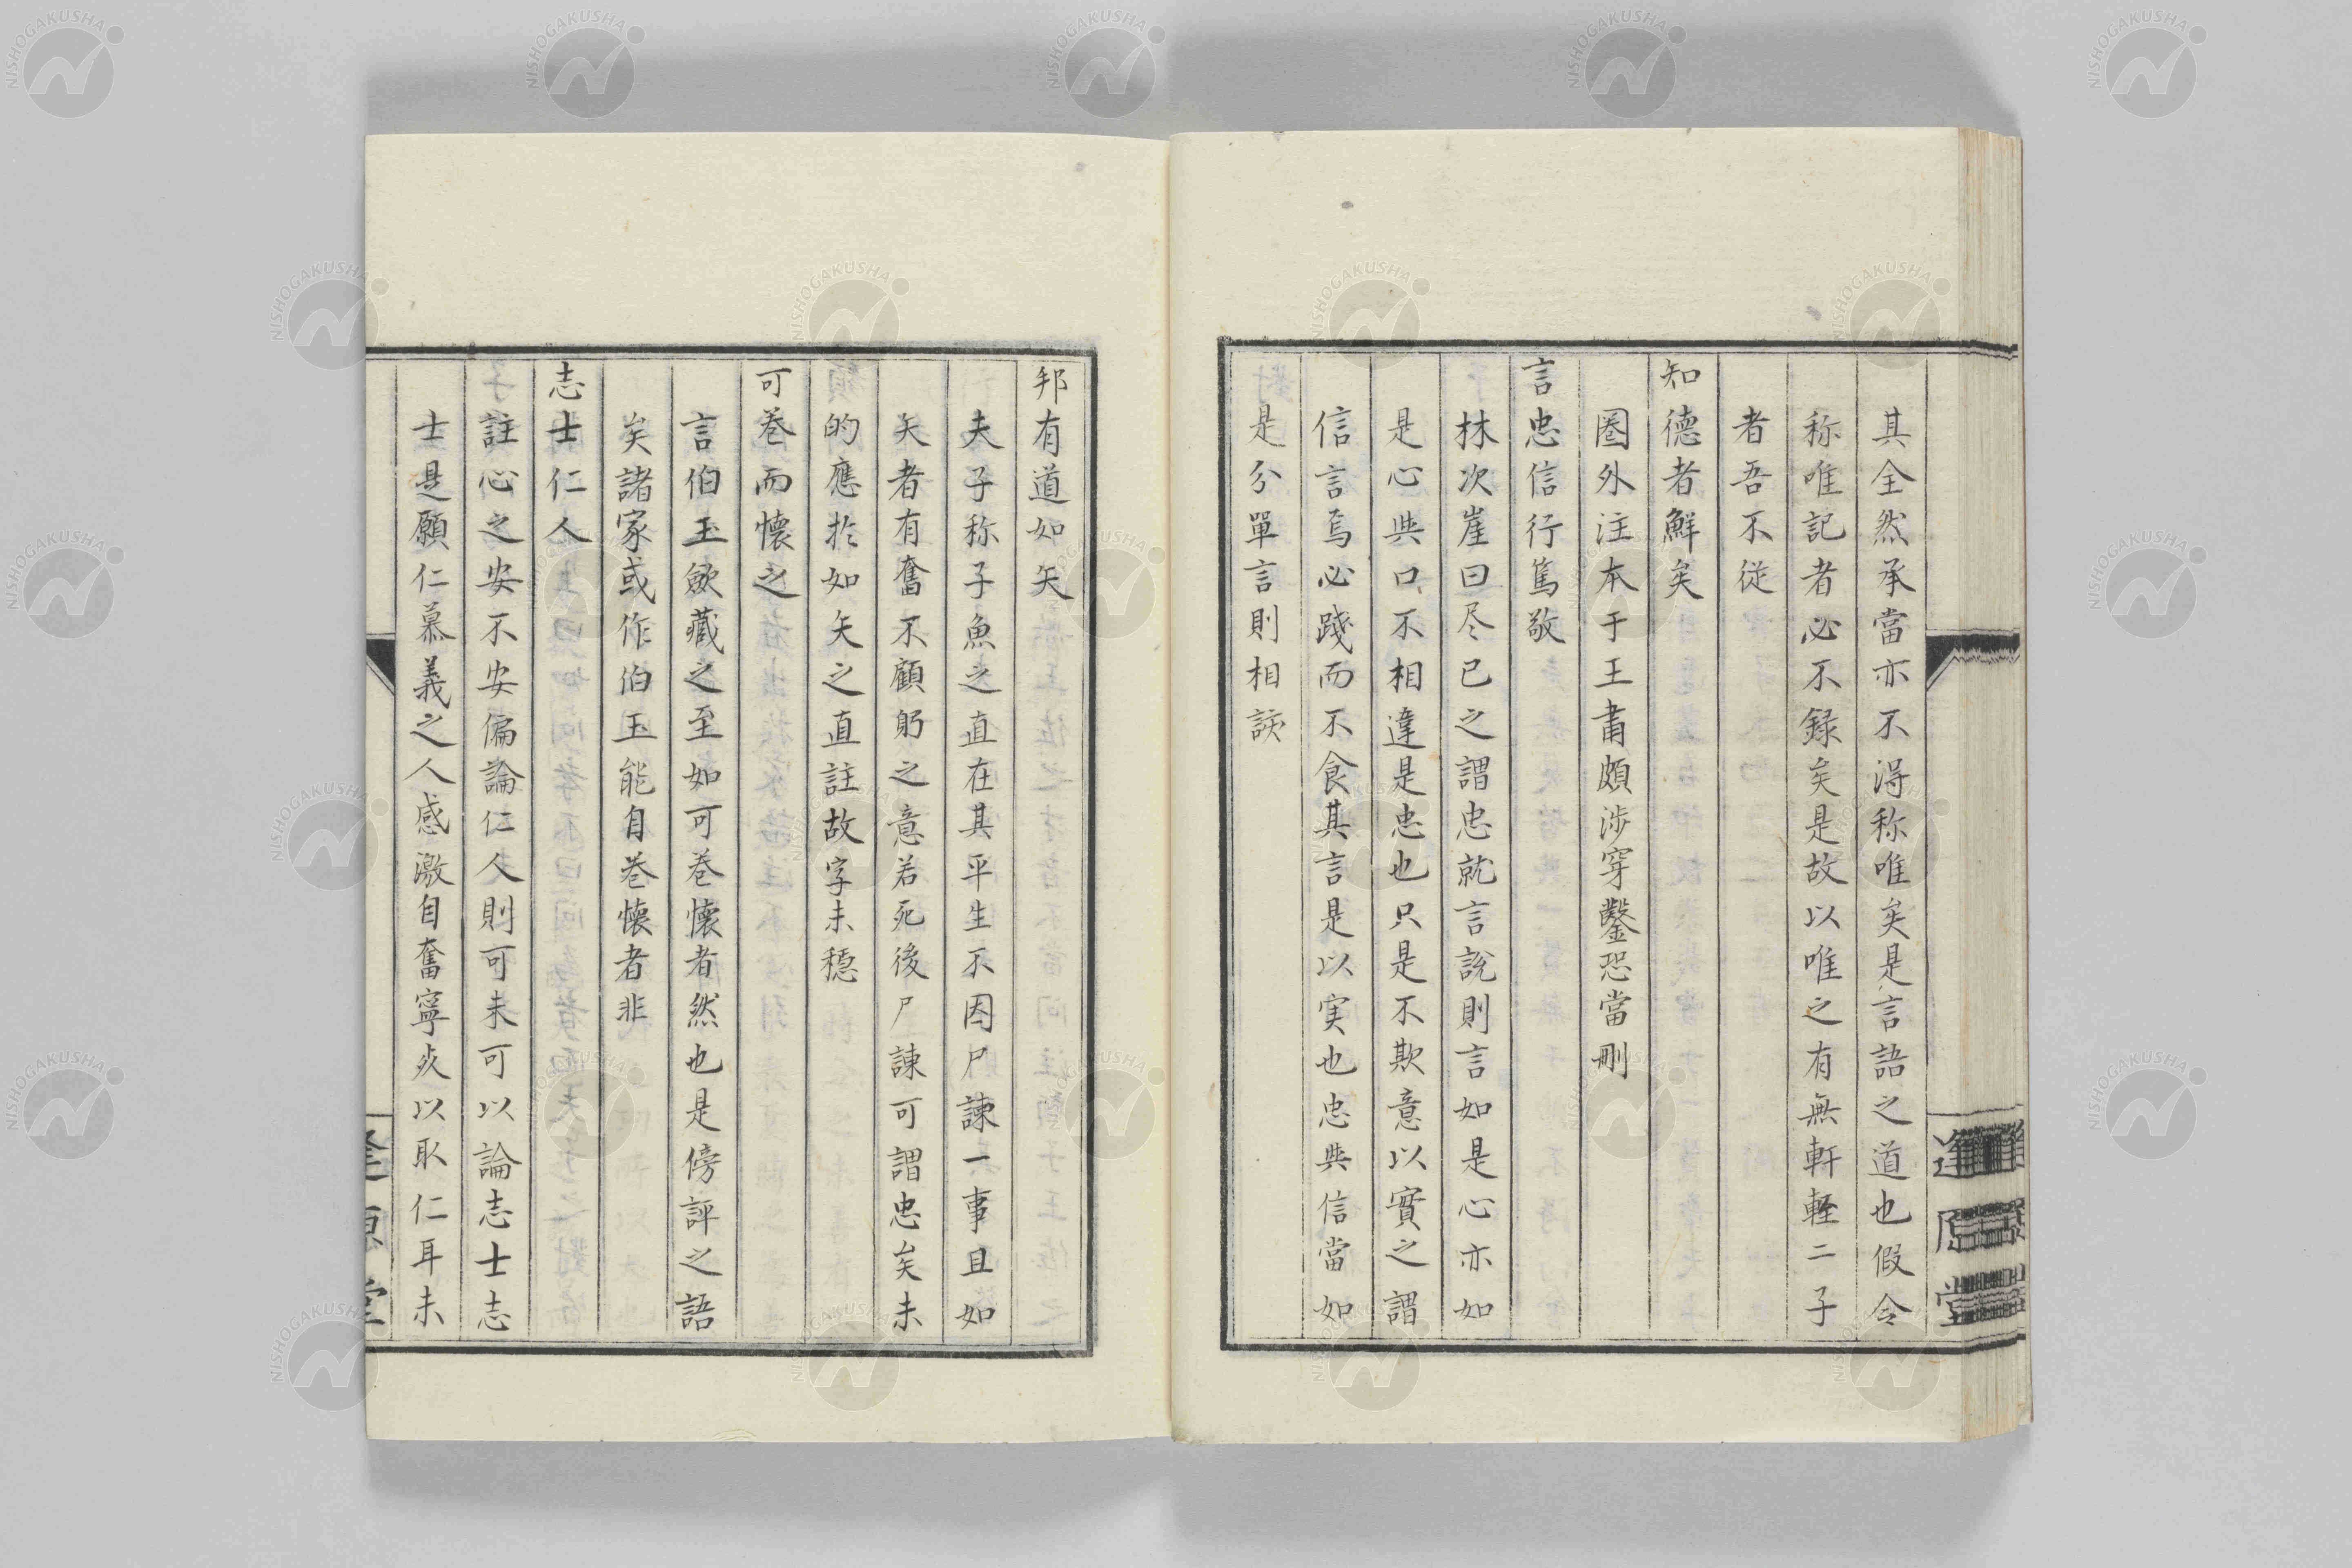 其全然承當亦不得称唯矣是言語之道也假令
称唯記者必不録矣是故以唯之有無軒輊二子
者吾不従
知德者鮮矣
圏外注本于王肅頗涉穿鑿恐當刪
言忠信行篤敬
林次崖曰尽已之謂忠就言說則言如是心亦如
是心與口不相違是忠也只是不欺意以實之謂
信言焉必踐而不食其言是以実也忠與信當如
是分單言則相該
邦有道如矢
夫子称子魚之直在其平生不因尸諫一事且如
矢者有奮不顧躬之意若死後尸諫可謂忠矣未
的應於如矢之直註故字未穏
可巻而懷之
言伯玉斂藏之至如可巻懷者然也是傍評之語
矣諸家或作伯玉能自巻懷者非
志士仁人
註心之安不安偏論仁人則可未可以論志士志
士是願仁慕義之人感激自奮寧死以取仁耳未
逢原堂